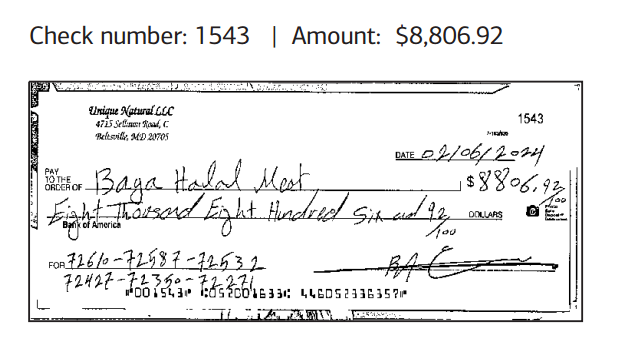 Check number: 1543 | Amount: $8,806.92
Unique Natural LLC
4715 Sellman Road, C
Beltsville, MD 20705
1543
DATE 02/06/2024
PAY TO THE ORDER OF Baga Halal Meat $8806.92/100
Eight Thousand Eight Hundred Six and 92/100 DOLLARS
Bank of America
FOR 72610-72587-72532
72427-72350-72271